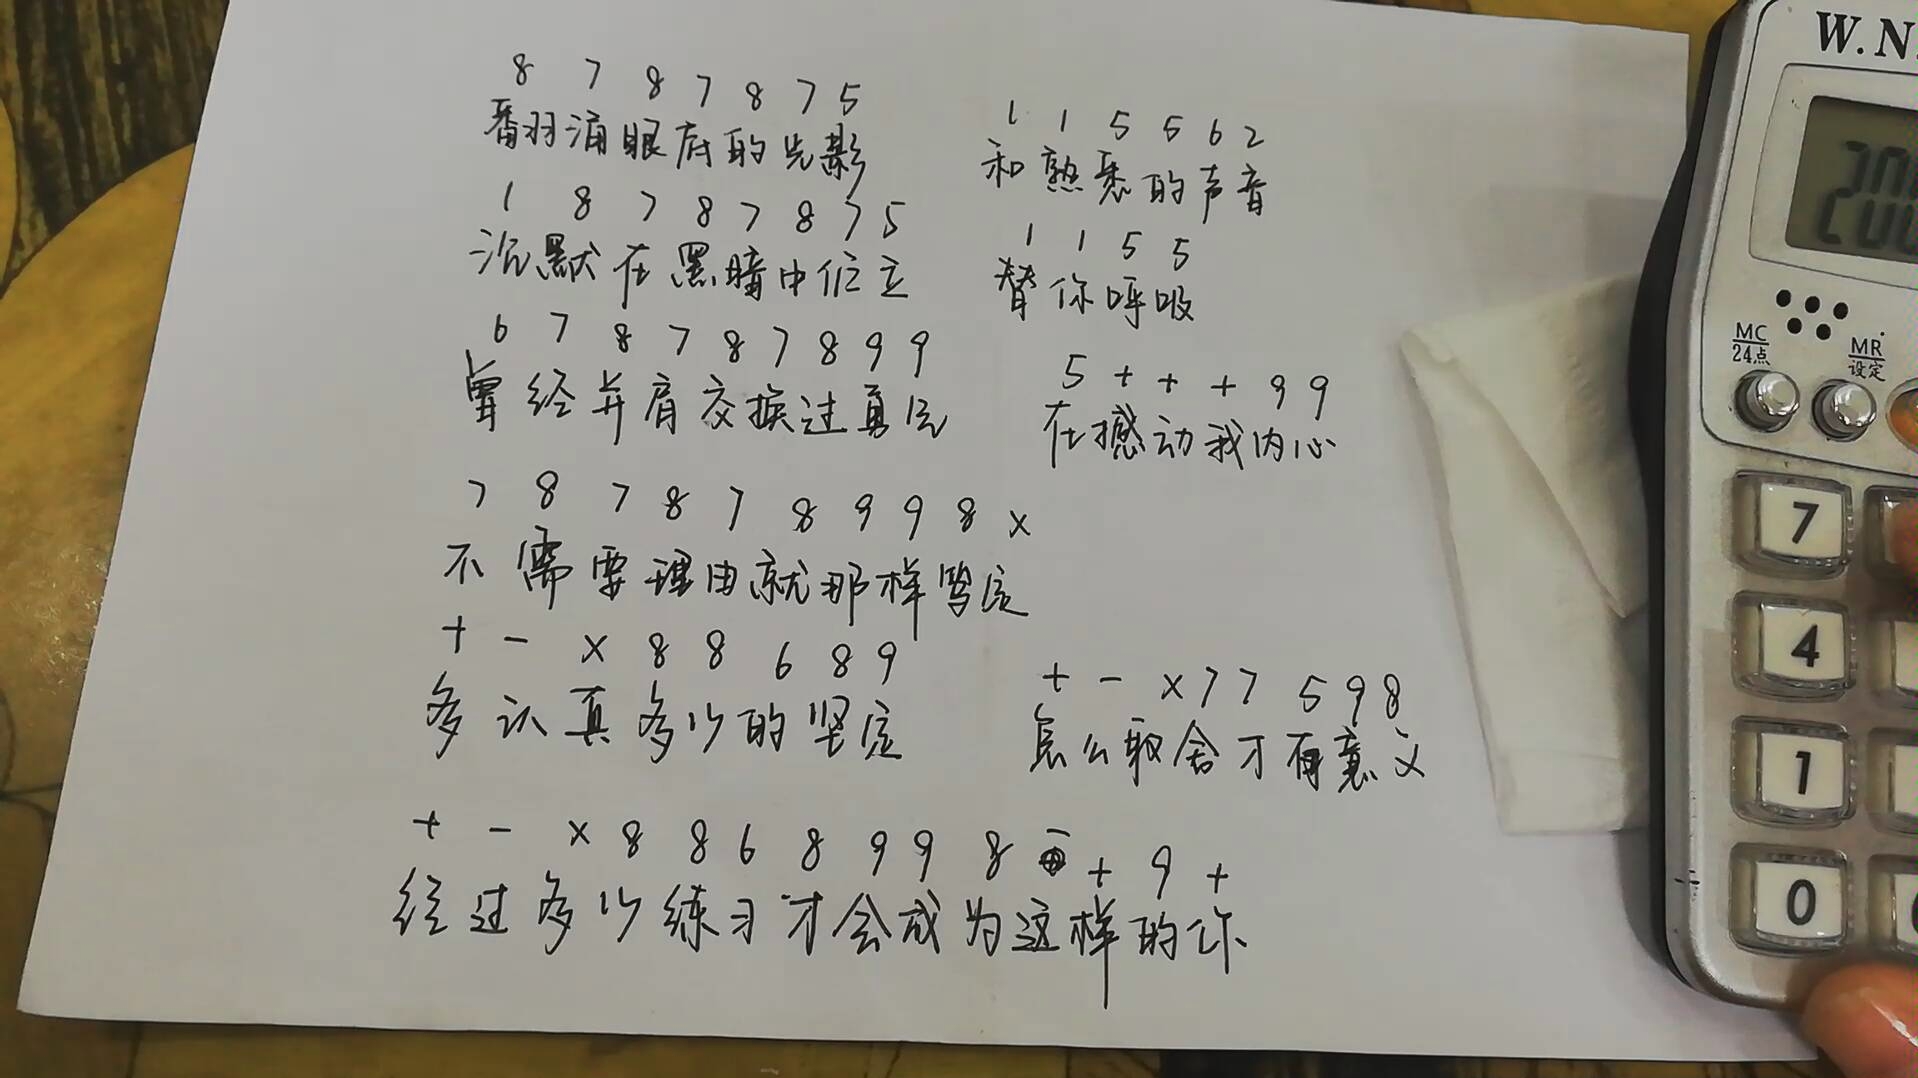 8 7 8 7 8 7 5
翻涌眼底的光影
1 1 5 5 6 2
和熟悉的声音
1 8 7 8 7 8 7 5
沉默在黑暗中伫立
1 1 5 5
替你呼吸
6 7 8 7 8 7 8 9 9
曾经并肩交换过真心
5 + + + 9 9
在撼动我内心
7 8 7 8 7 8 9 9 8 x
不需要理由就那样笃定
+ - x 8 8 6 8 9
多认真多少的坚定
+ - x 7 7 5 9 8
怎么取舍才有意义
+ - x 8 8 6 8 9 9 8 = + 9 +
经过多少练习才会成为这样的你
W.N
MC
24点
MR
设定
7
4
1
0